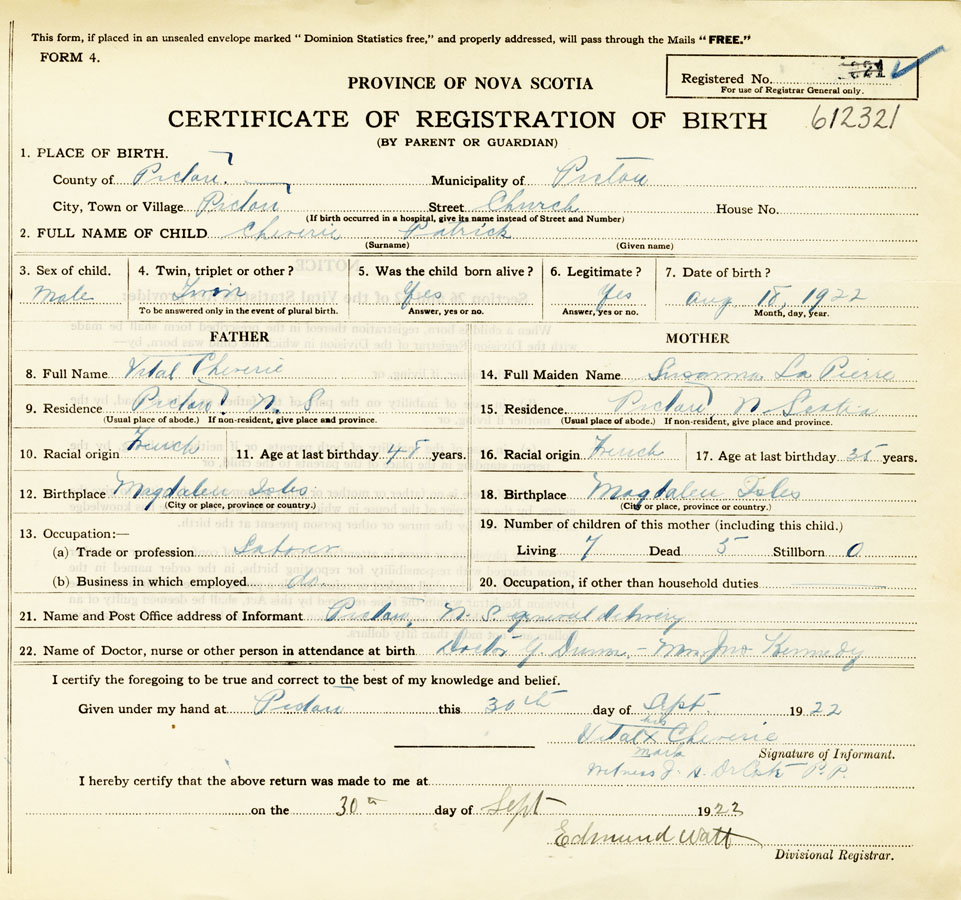 This form, if placed in an unsealed envelope marked "Dominion Statistics free," and properly addressed, will pass through the Mails "FREE."
FORM 4.
PROVINCE OF NOVA SCOTIA
Registered No.
For use of Registrar General only.
CERTIFICATE OF REGISTRATION OF BIRTH
612321
(BY PARENT OR GUARDIAN)
1. PLACE OF BIRTH.
County of Pictou Municipality of Pictou
City, Town or Village Pictou Street Church House No.
(If birth occurred in a hospital, give its name instead of Street and Number)
2. FULL NAME OF CHILD Cheverie Patrick
(Surname) (Given name)
3. Sex of child. 4. Twin, triplet or other? 5. Was the child born alive? 6. Legitimate? 7. Date of birth?
Male Twin Yes Yes Aug 18, 1922
To be answered only in the event of plural birth. Answer, yes or no. Answer, yes or no. Month, day, year.
FATHER MOTHER
8. Full Name Vital Cheverie 14. Full Maiden Name Susanna La Pierre
9. Residence Pictou N. S 15. Residence Pictou N Scotia
(Usual place of abode.) If non-resident, give place and province. (Usual place of abode.) If non-resident, give place and province.
10. Racial origin French 11. Age at last birthday 48 years. 16. Racial origin French 17. Age at last birthday 35 years.
12. Birthplace Magdalen Isles 18. Birthplace Magdalen Isles
(City or place, province or country.) (City or place, province or country.)
13. Occupation:— 19. Number of children of this mother (including this child.)
(a) Trade or profession Laborer Living 7 Dead 5 Stillborn 0
(b) Business in which employed do. 20. Occupation, if other than household duties
21. Name and Post Office address of Informant Pictou, N. S. general delivery
22. Name of Doctor, nurse or other person in attendance at birth Doctor G. Dunn - Mrs Jno Kennedy
I certify the foregoing to be true and correct to the best of my knowledge and belief.
Given under my hand at Pictou this 30th day of Sept 1922
his
Vital x Cheverie
mark
Signature of Informant.
Witness P. P.
I hereby certify that the above return was made to me at
on the 30th day of Sept 1922
Edmund Watt
Divisional Registrar.